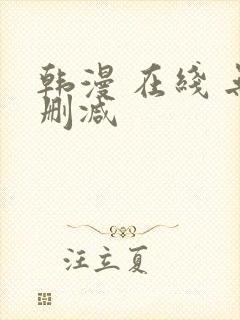 韩漫 在綫 无
删减
汪立夏